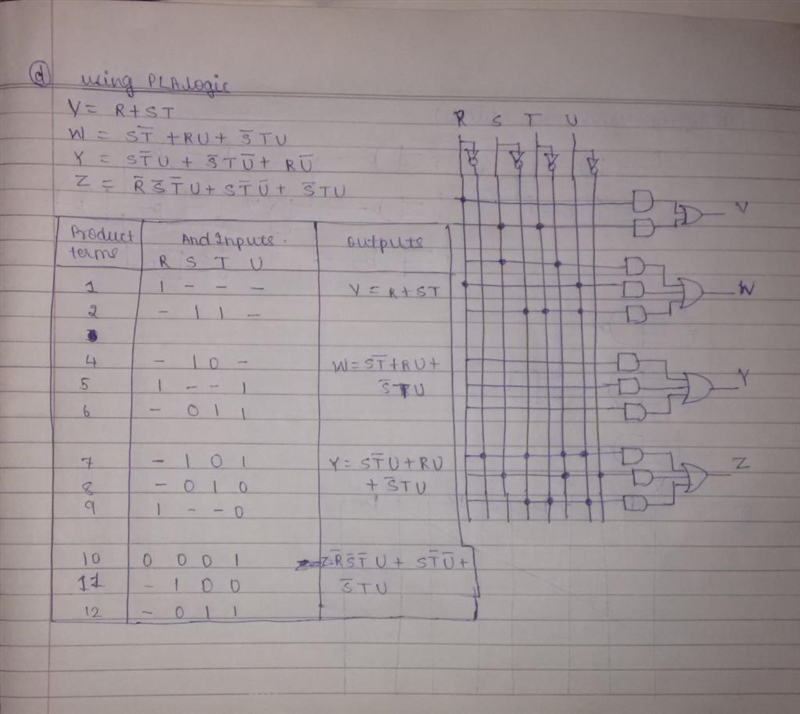 (d) using PLA logic
V = R + ST
W = ST̅ + RU + S̅TU
Y = ST̅U + S̅TU̅ + RU̅
Z = R̅S̅T̅U + ST̅U̅ + S̅TU
Product terms And Inputs. outputs
R S T U
1 1 - - - V = R + ST
2 - 1 1 -
4 - 1 0 - W = ST̅ + RU +
5 1 - - 1 S̅TU
6 - 0 1 1
7 - 1 0 1 Y = ST̅U + RU
8 - 0 1 0 + S̅TU
9 1 - - 0
10 0 0 0 1 Z = R̅S̅T̅U + ST̅U̅ +
11 - 1 0 0 S̅TU
12 - 0 1 1
R S T U
V
W
Y
Z